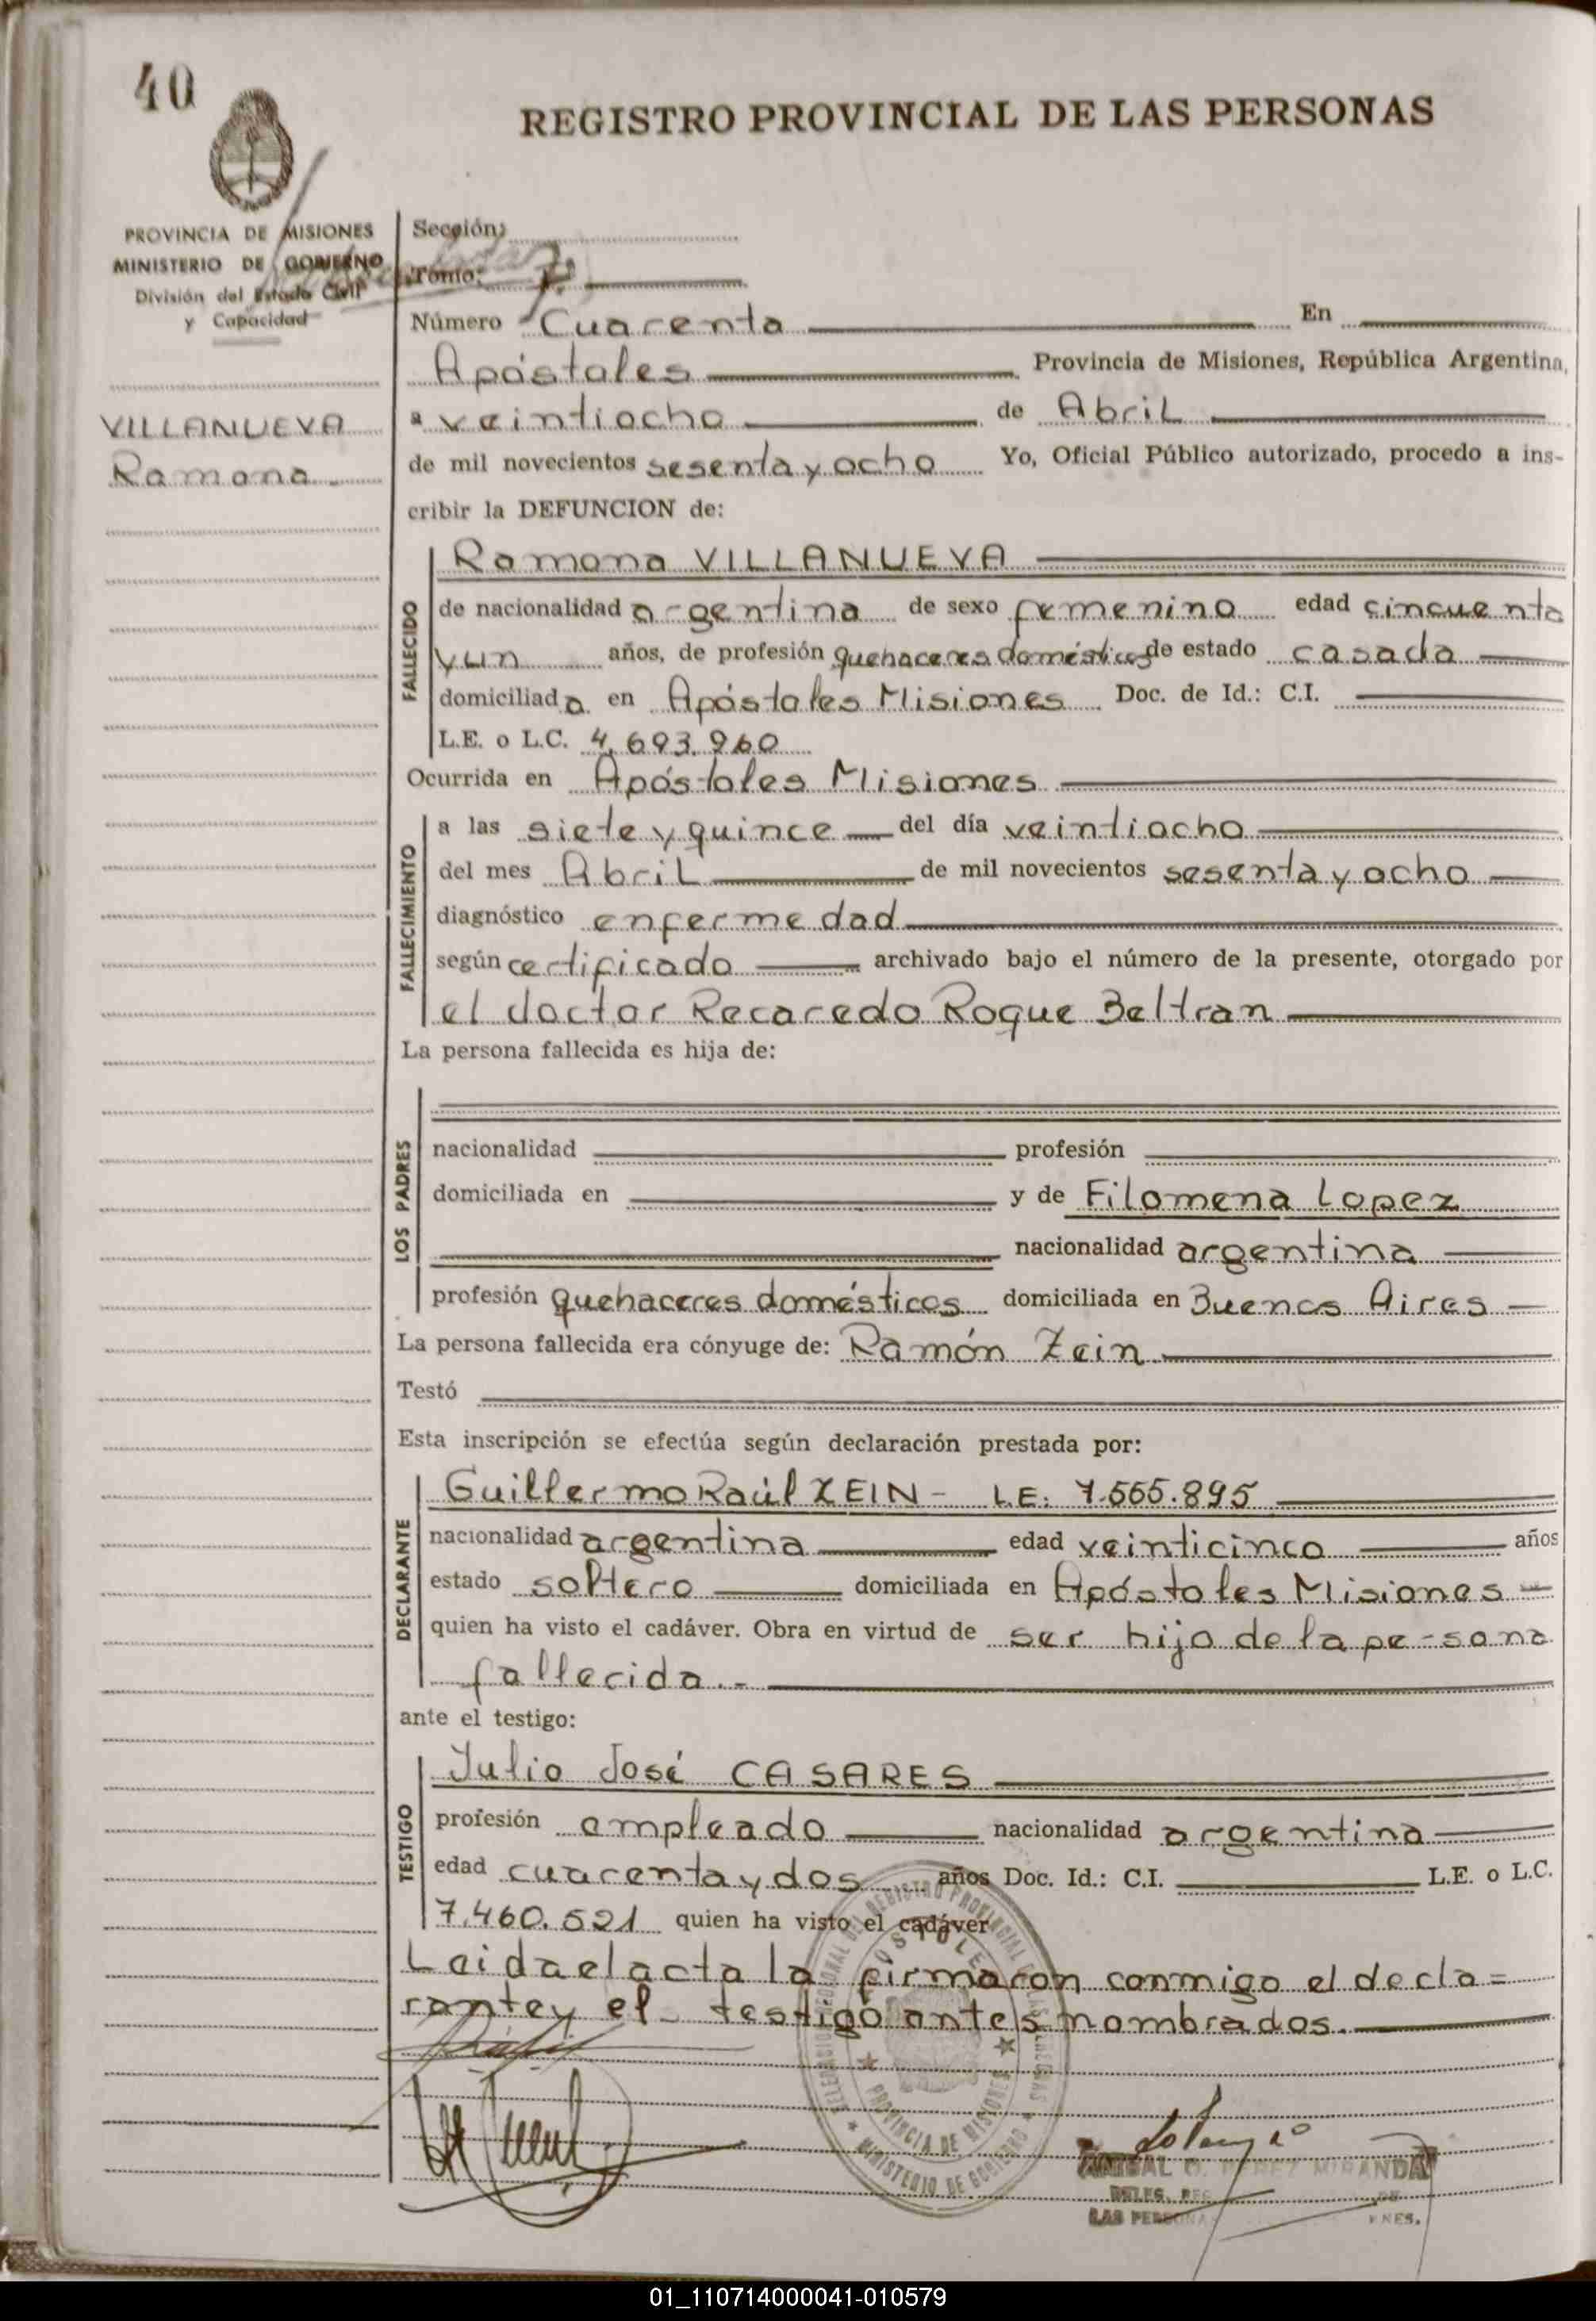 40
REGISTRO PROVINCIAL DE LAS PERSONAS
PROVINCIA DE MISIONES
MINISTERIO DE GOBIERNO
División del Estado Civil
y Capacidad
VILLANUEVA
Ramona.-
Sección:
Tomo: 1º
Número Cuarenta En
Apóstoles Provincia de Misiones, República Argentina,
a veintiocho de Abril
de mil novecientos sesenta y ocho Yo, Oficial Público autorizado, procedo a ins-
cribir la DEFUNCION de:
FALLECIDO
Ramona VILLANUEVA
de nacionalidad argentina de sexo femenino edad cincuenta
y un años, de profesión quehaceres domésticos de estado casada
domiciliada en Apóstoles Misiones Doc. de Id.: C.I.
L.E. o L.C. 4.693.960
Ocurrida en Apóstoles Misiones
FALLECIMIENTO
a las siete y quince del día veintiocho
del mes Abril de mil novecientos sesenta y ocho
diagnóstico enfermedad
según certificado archivado bajo el número de la presente, otorgado por
el doctor Recaredo Roque Beltran
La persona fallecida es hija de:
LOS PADRES
nacionalidad profesión
domiciliada en y de Filomena Lopez
nacionalidad argentina
profesión quehaceres domésticos domiciliada en Buenos Aires
La persona fallecida era cónyuge de: Ramón Zein
Testó
Esta inscripción se efectúa según declaración prestada por:
DECLARANTE
Guillermo Raúl ZEIN - L.E. 7.555.895
nacionalidad argentina edad veinticinco años
estado soltero domiciliada en Apóstoles Misiones
quien ha visto el cadáver. Obra en virtud de ser hijo de la persona
fallecida.-
ante el testigo:
TESTIGO
Julio José CASARES
profesión empleado nacionalidad argentina
edad cuarenta y dos años Doc. Id.: C.I. L.E. o L.C.
7.460.521 quien ha visto el cadáver
Leida el acta la firmaron conmigo el decla=
rante y el testigo antes nombrados.
PROVINCIA DE MISIONES
MINISTERIO DE GOBIERNO
PEREZ MIRANDA
01_110714000041-010579